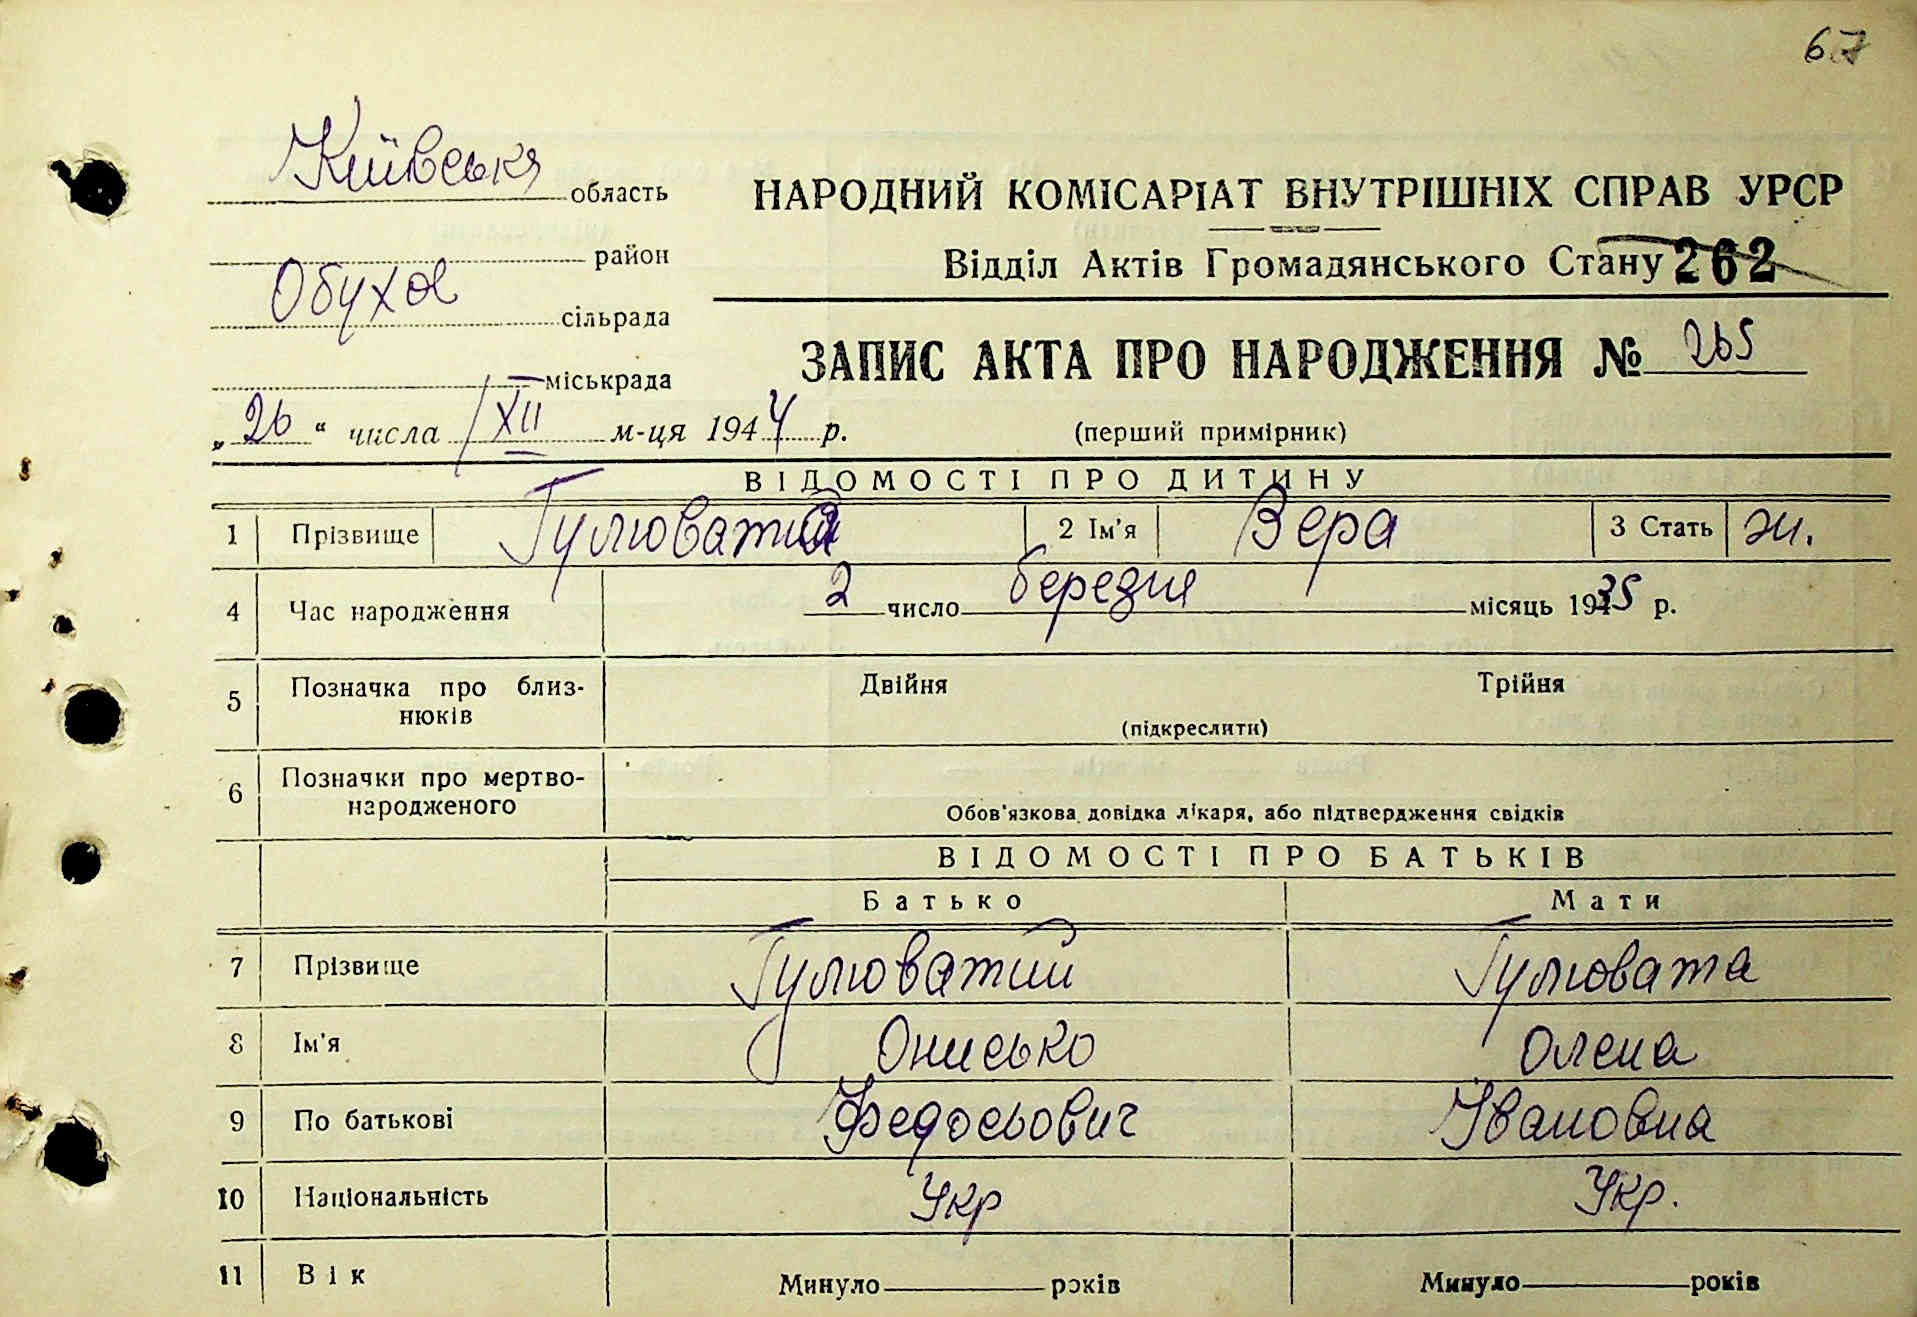 67
Київська область
район
Обухов сільрада
міськрада
НАРОДНИЙ КОМІСАРІАТ ВНУТРІШНІХ СПРАВ УРСР
Відділ Актів Громадянського Стану 262
ЗАПИС АКТА ПРО НАРОДЖЕННЯ № 265
„26“ числа XII м-ця 1944 р. (перший примірник)
ВІДОМОСТІ ПРО ДИТИНУ
1 Прізвище Гулювата 2 Ім'я Вера 3 Стать ж.
4 Час народження 2 число березня місяць 1935 р.
5 Позначка про близ-
нюків
Двійня Трійня
(підкреслити)
6 Позначки про мертво-
народженого
Обов'язкова довідка лікаря, або підтвердження свідків
ВІДОМОСТІ ПРО БАТЬКІВ
Батько Мати
7 Прізвище Гулюватий Гулювата
8 Ім'я Онисько Олена
9 По батькові Федосьович Івановна
10 Національність Укр Укр.
11 Вік Минуло років Минуло років